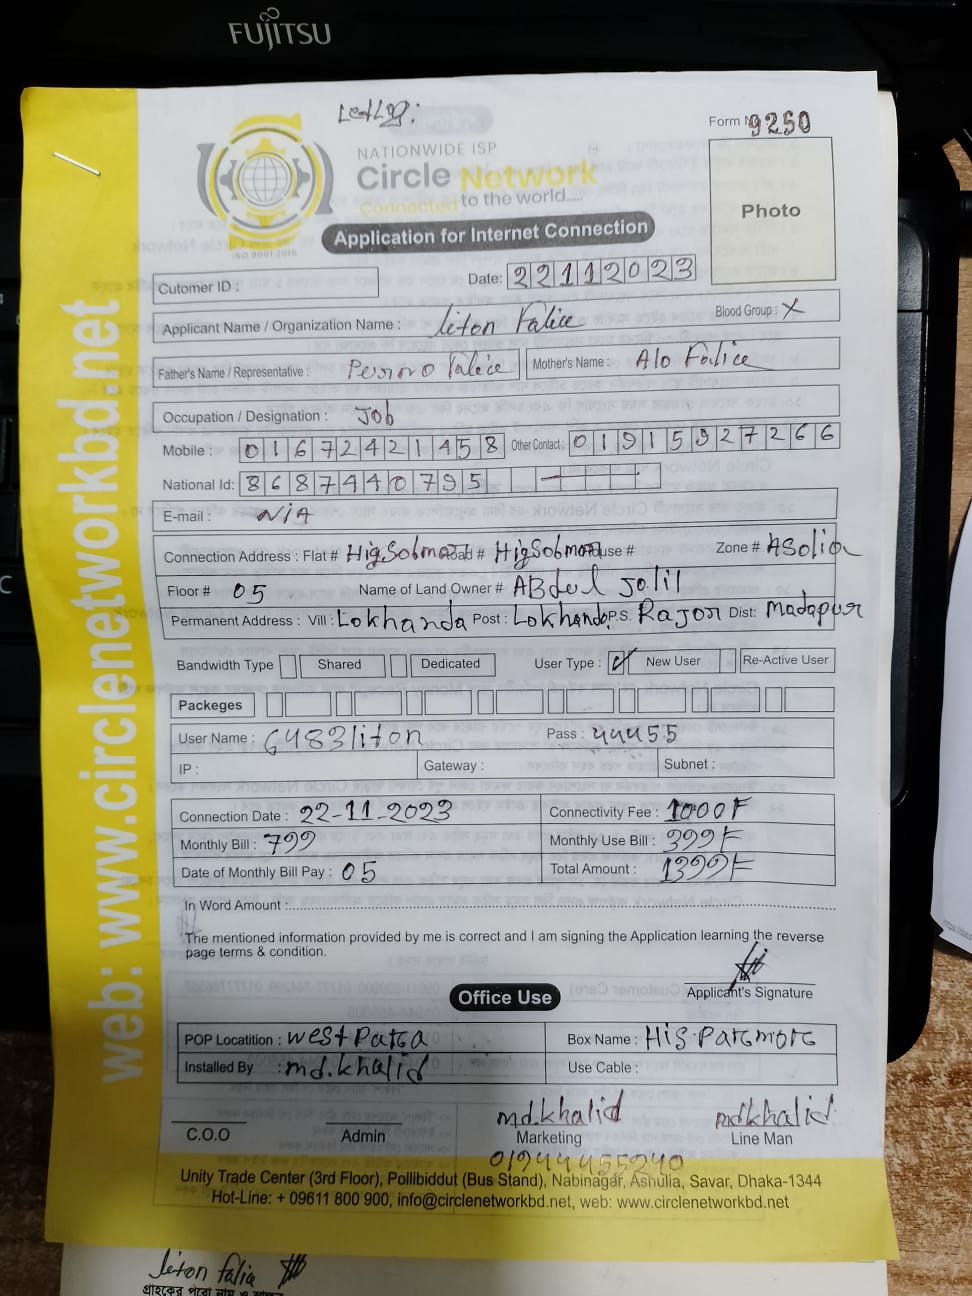 FUJITSU
Form N 9250
NATIONWIDE ISP
Circle Network
Connected to the world.....
ISO 9001:2015
Application for Internet Connection
Photo
Cutomer ID :
Date: 22112023
Applicant Name / Organization Name : liton Falice Blood Group : X
Father's Name / Representative : Mother's Name : Alo Falice
Occupation / Designation : Job
Mobile : 01672421458 Other Contact : 01915927266
National Id: 8687440795
E-mail : N/A
Connection Address : Flat # Road # House # Zone # ASolia
Floor # 05 Name of Land Owner # ABdul Jolil
Permanent Address : Vill : Lokhanda Post : Lokhanda P.S. Rajor Dist: Madapur
Bandwidth Type Shared Dedicated User Type : ✓ New User Re-Active User
Packeges
User Name : 6483liton Pass : 44455
IP : Gateway : Subnet :
Connection Date : 22-11-2023 Connectivity Fee : 1000
Monthly Bill : 799 Monthly Use Bill : 399
Date of Monthly Bill Pay : 05 Total Amount : 1399
In Word Amount :
The mentioned information provided by me is correct and I am signing the Application learning the reverse
page terms & condition.
Applicant's Signature
Office Use
POP Locatition : west Para Box Name :
Installed By : md.khalid Use Cable :
md.khalid md khalid
C.O.O Admin Marketing Line Man
01944455240
Unity Trade Center (3rd Floor), Pollibiddut (Bus Stand), Nabinagar, Ashulia, Savar, Dhaka-1344
Hot-Line: + 09611 800 900, info@circlenetworkbd.net, web: www.circlenetworkbd.net
web: www.circlenetworkbd.net
liton falia